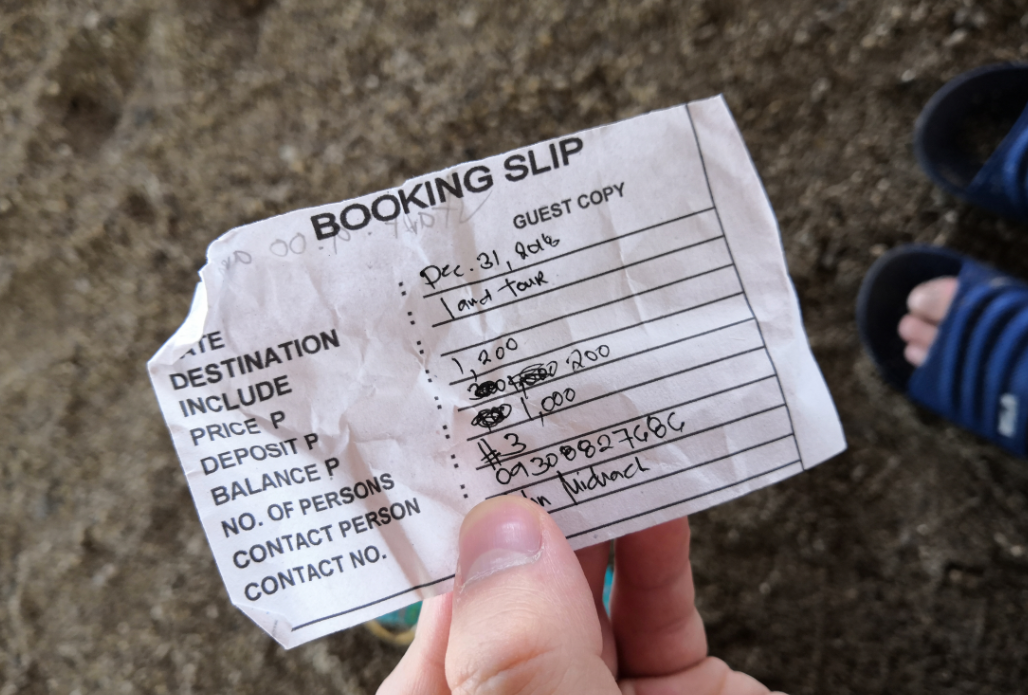 BOOKING SLIP
GUEST COPY
ATE Dec. 31, 2018
DESTINATION land tour
INCLUDE
PRICE P 1,200
DEPOSIT P 200
BALANCE P 1,000
NO. OF PERSONS #3
CONTACT PERSON 09308827686
CONTACT NO.